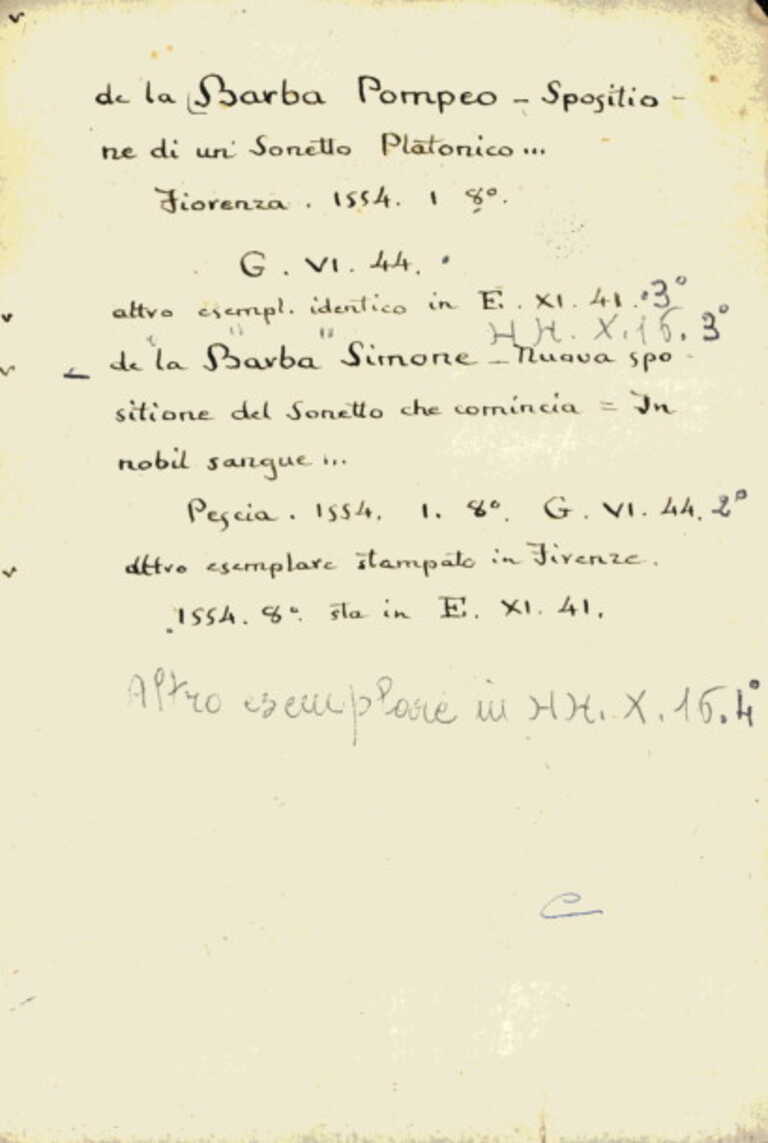 de la Barba Pompeo - Spositio -
ne di un Sonetto Platonico ...
Fiorenza . 1554. 1 8°.
G . VI. 44.
altro esempl. identico in E. XI. 41. 3°
" " " HH. X. 16. 3°
de la Barba Simone - Nuova spo -
sitione del Sonetto che comincia = In
nobil sangue ...
Pescia . 1554. 1. 8°. G. VI. 44. 2°
Altro esemplare stampato in Firenze.
1554. 8°. sta in E. XI. 41.
Altro esemplare in HH. X. 16. 4°